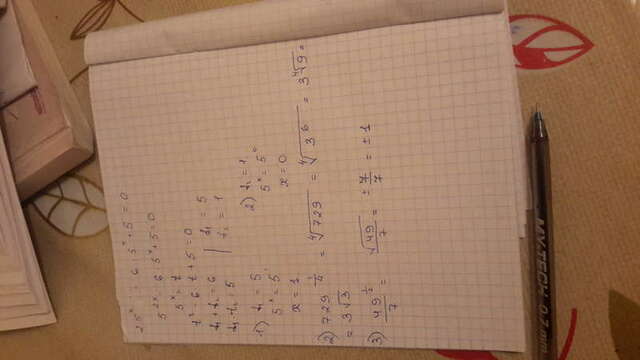 25ˣ - 6 · 5ˣ + 5 = 0
5²ˣ - 6 · 5ˣ + 5 = 0
5ˣ = t
t² - 6 t + 5 = 0
t₁ + t₂ = 6
t₁ · t₂ = 5
t₁ = 5
t₂ = 1
1) t₁ = 5
5ˣ = 5
x = 1
2) t₂ = 1
5ˣ = 5⁰
x = 0
2) 729^(1/4) = ⁴√729 = ⁴√3⁶ = 3 ⁴√9 =
= 3√3
3) 49^(1/2) / 7 = √49 / 7 = ± 7/7 = ± 1
MYTECH 0.7